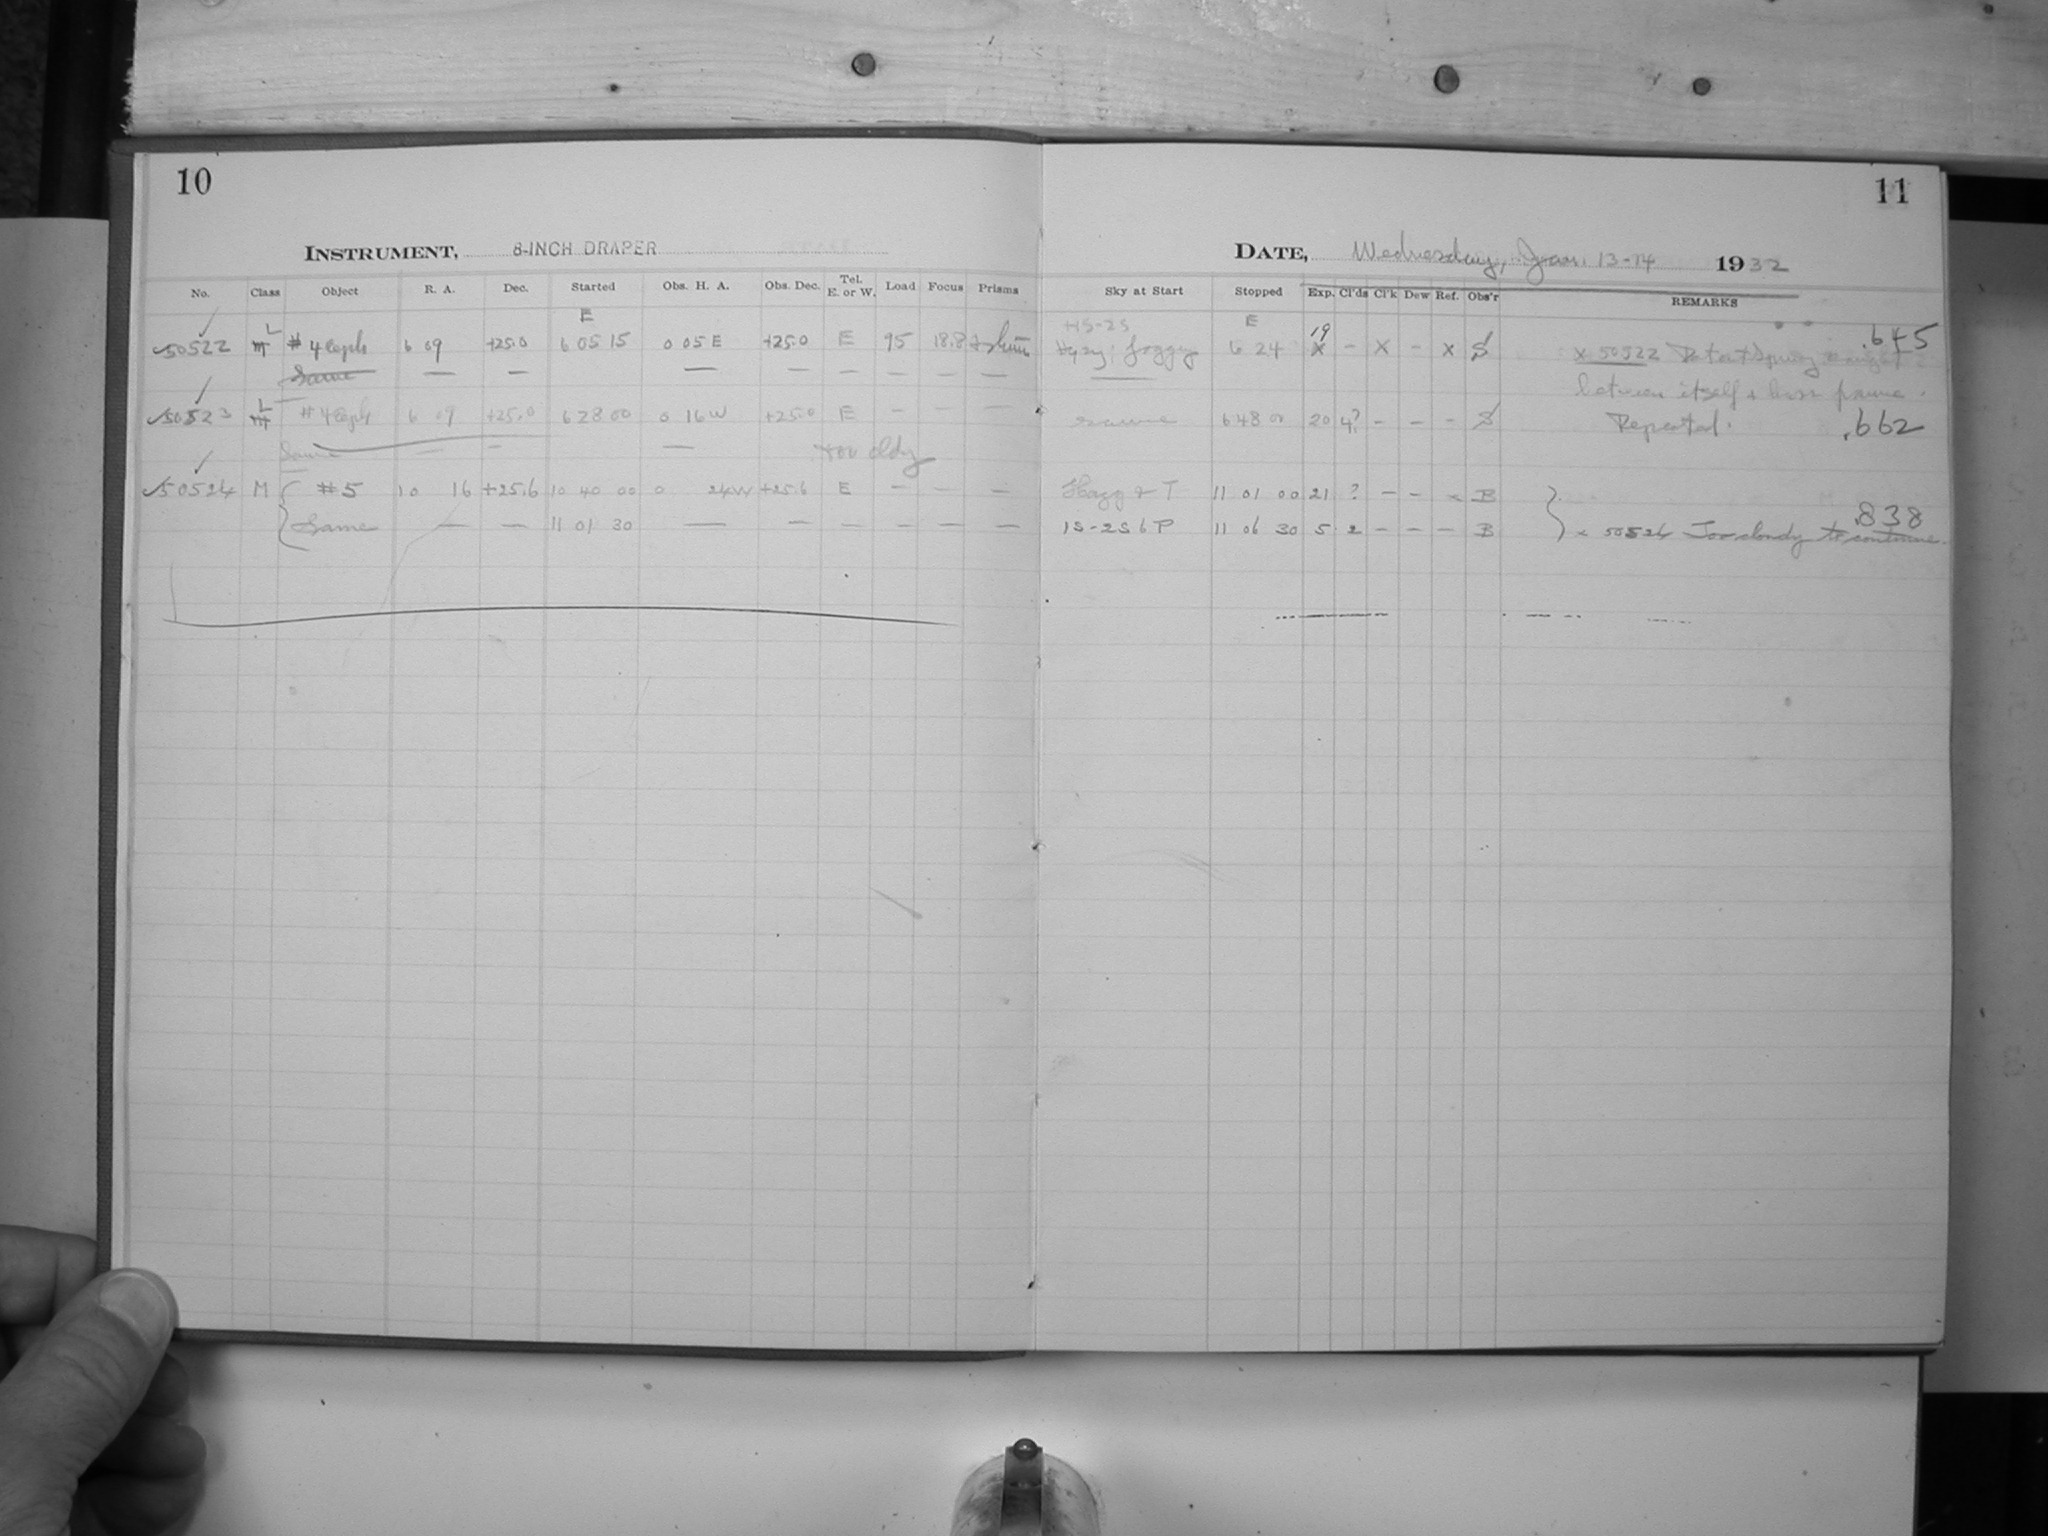 10
11
INSTRUMENT, 8-INCH DRAPER
DATE, Wednesday, Jan. 13-14 1932
No. Class Object R. A. Dec. Started Obs. H. A. Obs. Dec. Tel. E. or W. Load Focus Prisms Sky at Start Stopped Exp. Cl'ds Cl'k Dew Ref. Obs'r REMARKS
E E
L HS-2S 19
50522 M # 4 Ceph 6 09 +25.0 6 05 15 0 05 E +25.0 E 95 18.8 Hazy; foggy 6 24 X - X - X S x 50522 .645
Same — — — — — — — — between itself +
L
50523 M # 4 Ceph 6 09 +25.0 6 28 00 0 16 W +25.0 E - - - same 6 48 00 20 4? - - - S Repeated. .662
Same — — — too cldy
50524 M # 5 10 16 +25.6 10 40 00 0 24W +25.6 E - - - Hazy & T 11 01 00 21 ? - - - B
Same — — 11 01 30 — — — — — — 1S-2S 6 P 11 06 30 5 2 - - - B x 50524 Too cloudy to continue. .838